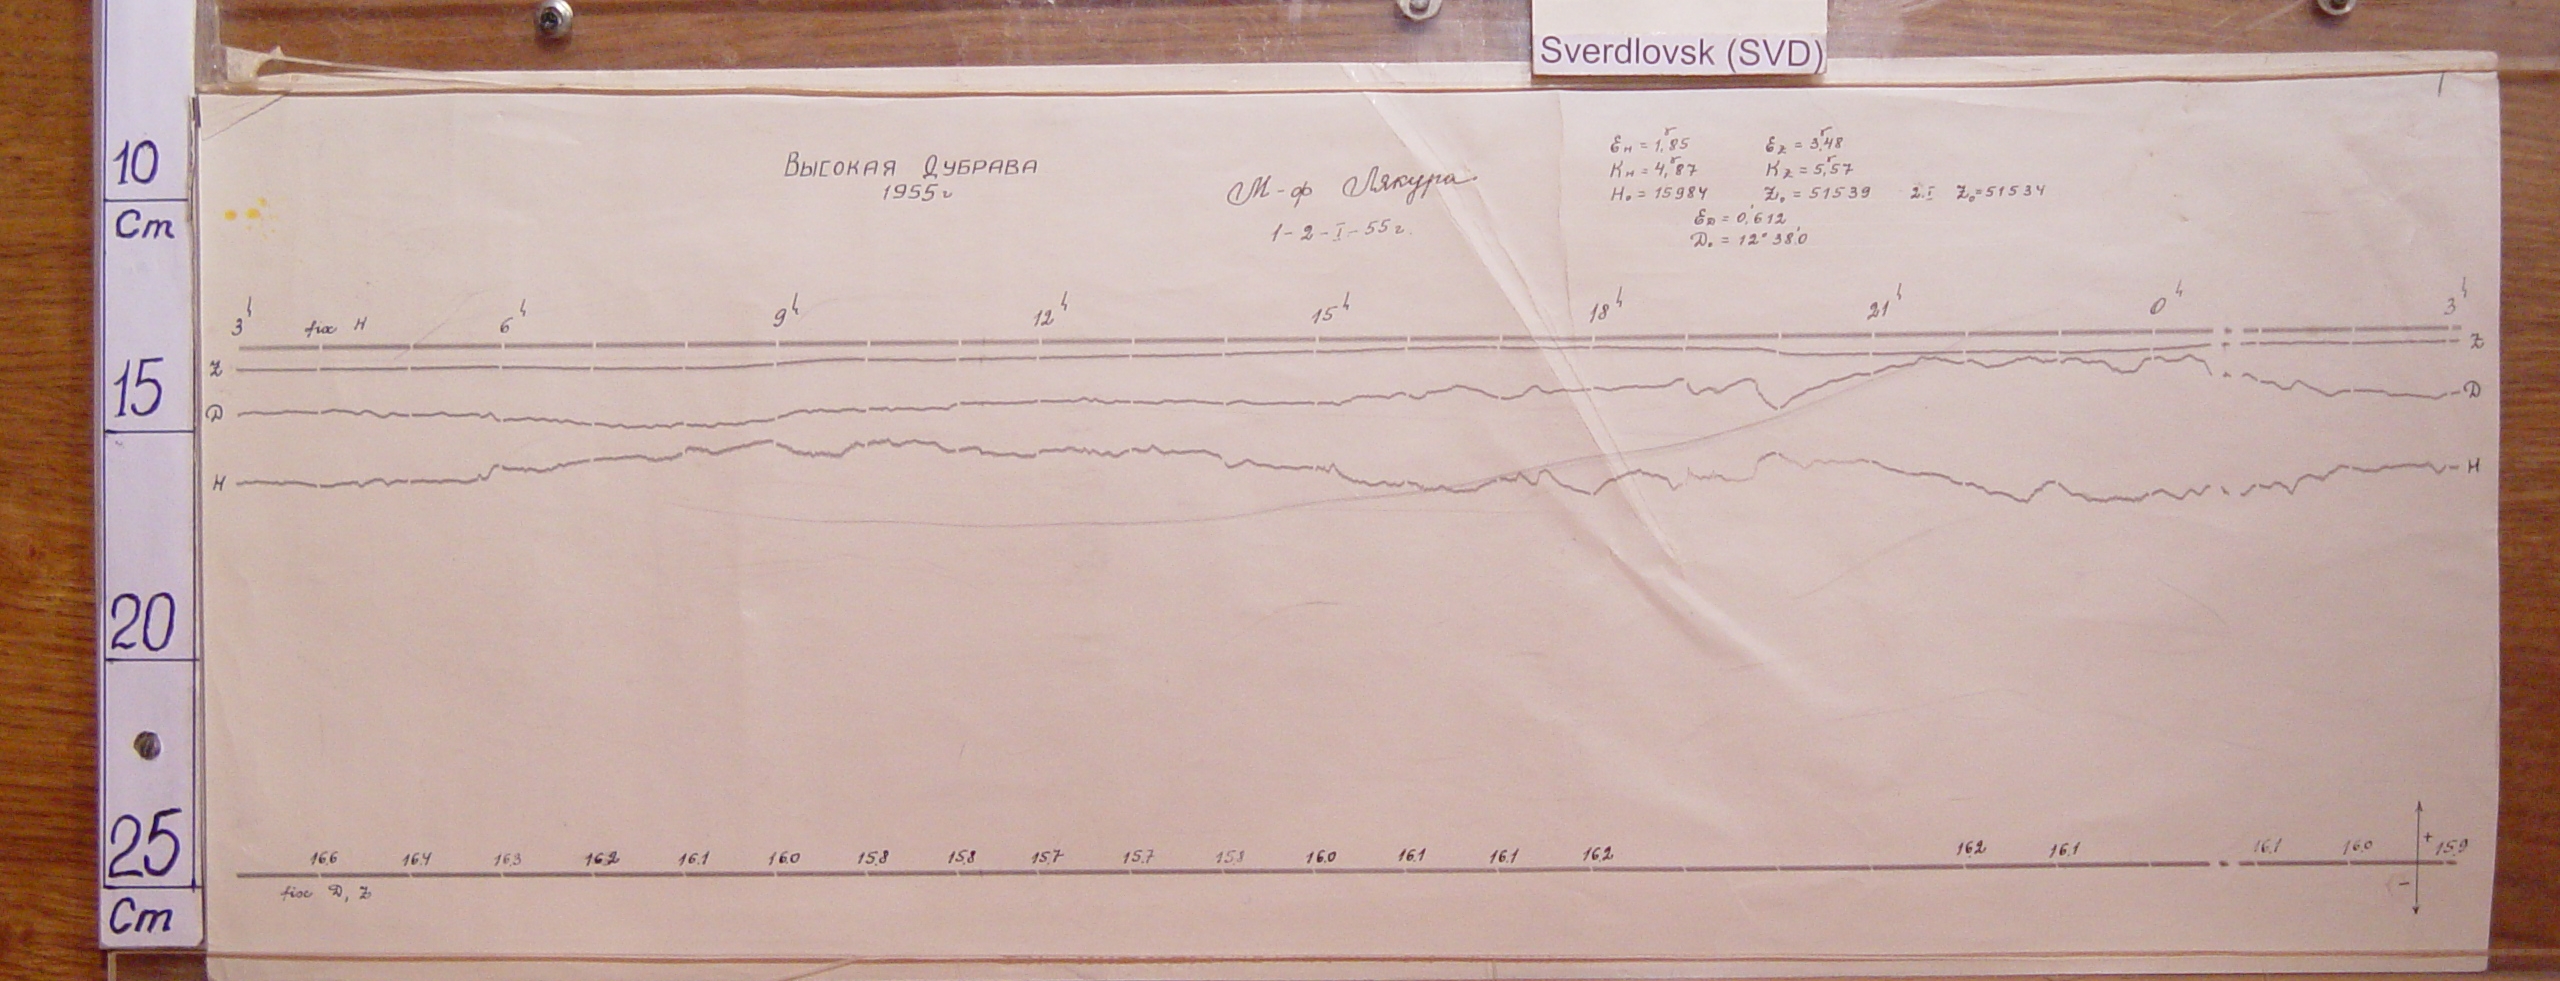 Sverdlovsk (SVD)
10
Cm
15
20
25
Cm
Высокая Дубрава
1955г
М-ф Лякура
1-2-I-55г.
Ɛн = 1,ᵞ85 Ɛz = 3,ᵞ48
Kн = 4,ᵞ87 Kz = 5,ᵞ57
H₀ = 15984 Z₀ = 51539 2.I Z₀ = 51534
ƐD = 0,′612
D₀ = 12° 38,′0
3ʰ fix H 6ʰ 9ʰ 12ʰ 15ʰ 18ʰ 21ʰ 0ʰ 3ʰ
Z Z
D D
H H
16.6 16.4 16.3 16.2 16.1 16.0 15.8 15.8 15.7 15.7 15.8 16.0 16.1 16.1 16.2 16.2 16.1 16.1 16.0 + 15.9
fix D, Z −